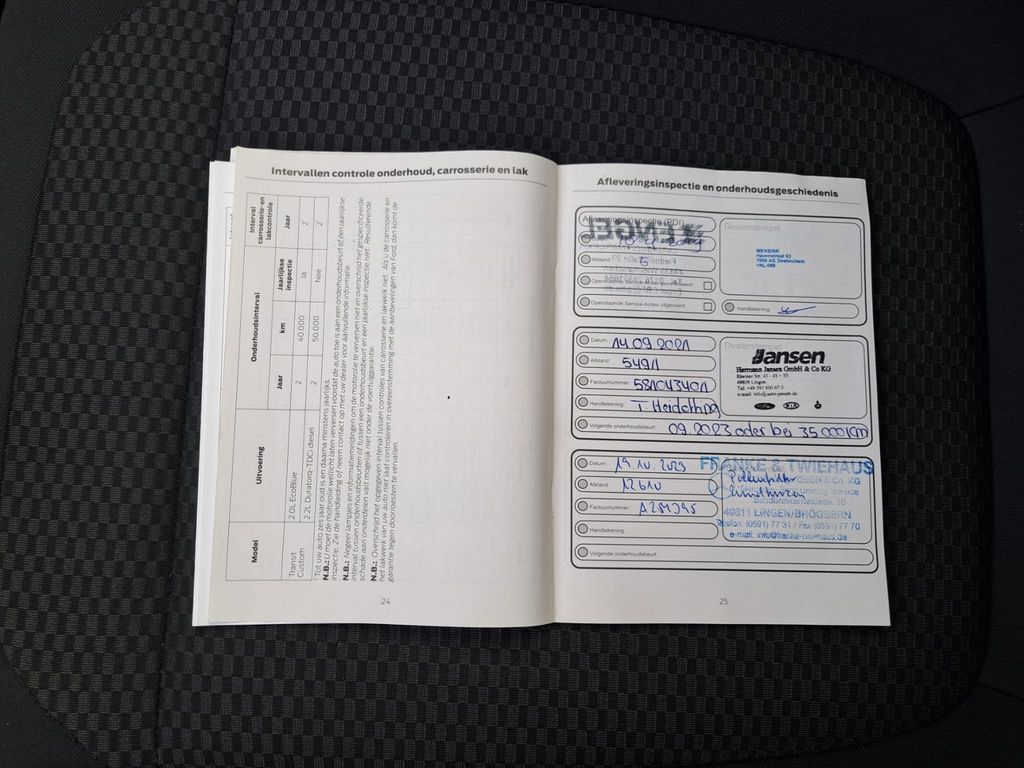 Intervallen controle onderhoud, carrosserie en lak
Model
Uitvoering
Onderhoudsinterval
Interval carrosserie- en lakcontrole
Jaar
km
Jaarlijkse inspectie
Jaar
Transit Custom
2.0L EcoBlue
2
40.000
Ja
2
2.2L Duratorq-TDCi diesel
2
50.000
Nee
2
Tot uw auto zes jaar oud is en daarna minstens jaarlijks.
N.B.: U moet de motorolie wellicht laten verversen voordat de auto toe is aan een onderhoudsbeurt of een jaarlijkse
inspectie. Zie de handleiding of neem contact op met uw dealer voor aanvullende informatie.
N.B.: Negeer lampjes en informatiemeldingen om de motorolie te verversen niet en overschrijd het gespecificeerde
interval tussen onderhoudsbeurten of tussen een onderhoudsbeurt en een jaarlijkse inspectie niet. Resulterende
schade aan onderdelen valt mogelijk niet onder de voertuiggarantie.
N.B.: Overschrijd het opgegeven interval tussen controles van carrosserie en lakwerk niet. Als u de carrosserie en
het lakwerk van uw auto niet laat controleren in overeenstemming met de aanbevelingen van Ford, dan komt de
garantie tegen doorroesten te vervallen.
24
Afleveringsinspectie en onderhoudsgeschiedenis
Afleveringsinspectie (PDI)
Afstand 5
Openstaande Service-Acties gecontroleerd:
Openstaande Service-Acties uitgevoerd:
Dealerstempel
WENSINK
Havenstraat 63
7005 AG Doetinchem
Handtekening:
Datum: 14.09.2021
Afstand: 5491
Factuurnummer: 581043401
Handtekening:
Volgende onderhoudsbeurt: 09.2023 oder bei 35000Km
Dealerstempel
Jansen
Hermann Jansen GmbH & Co KG
49809 Lingen
KIA
Datum: 19.10.2023
Afstand: 12610
Factuurnummer:
Handtekening:
Volgende onderhoudsbeurt:
FRANKE & TWIEHAUS
GmbH & Co. KG
Pollenfilter
49811 LINGEN/BRÖGBERN
Telefon (0591) 77 31 / Fax (0591) 77 70
e-mail: info@franke-twiehaus.de
25